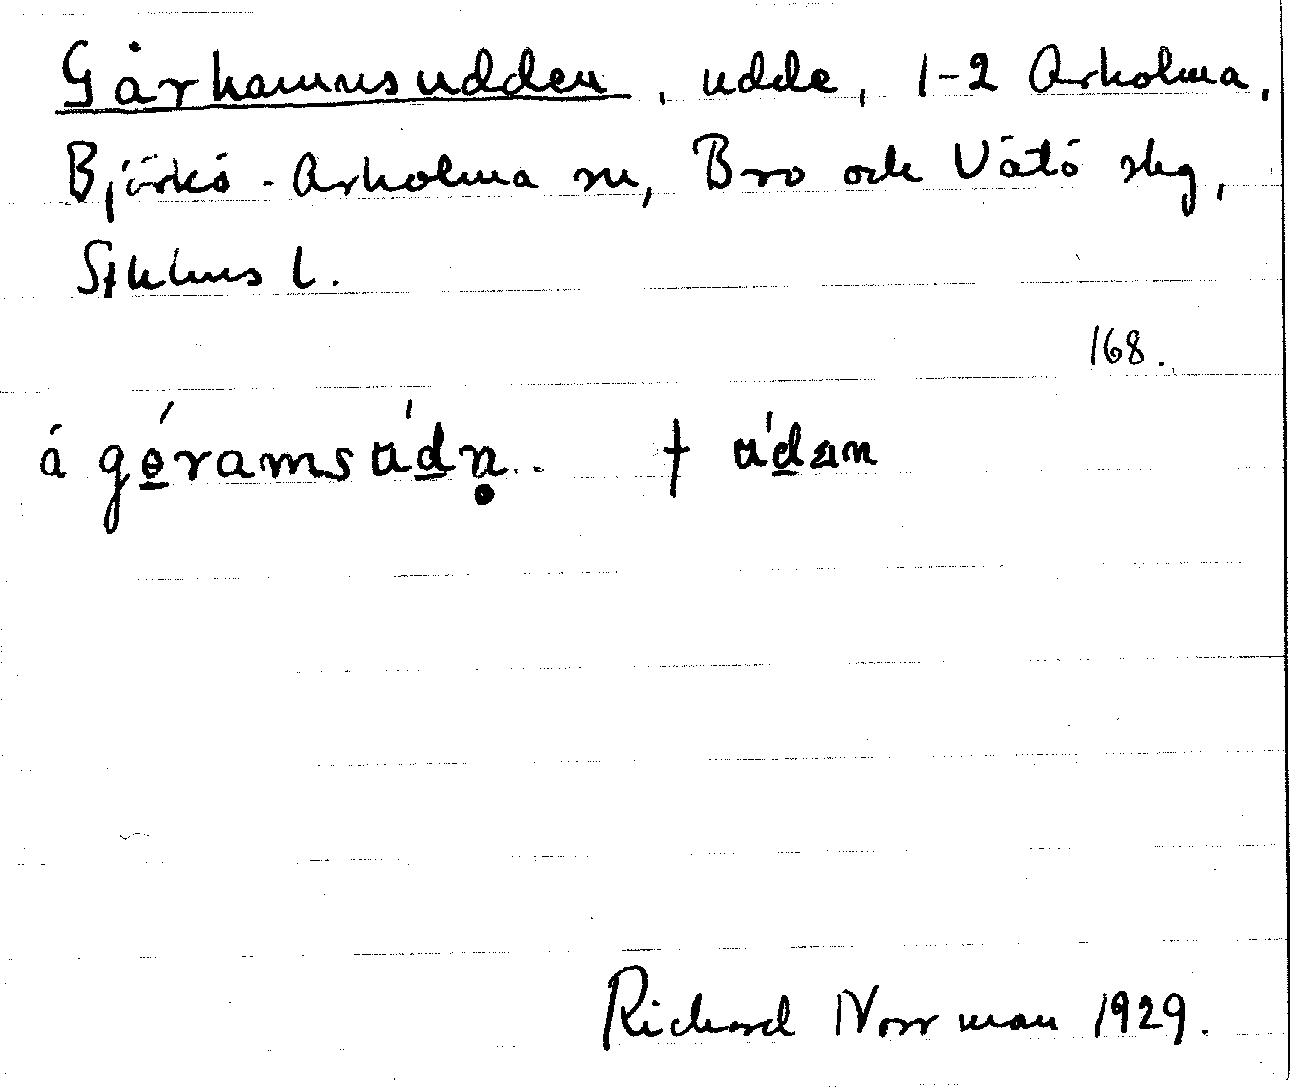 Gårhamnsudden, udde, 1-2 Arholma,
Björkö-Arholma sn, Bro och Vätö skg,
Sthlms l.
168.
á gɵ́ramsúdn̥.. † údan
Richard Norrman 1929.